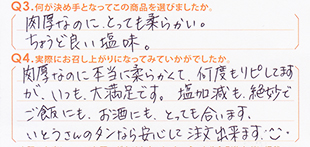 Q3.何が決め手となってこの商品を選びましたか。
肉厚なのに、とっても柔らかい。
ちょうど良い塩味。
Q4.実際にお召し上がりになってみていかがでしたか。
肉厚なのに本当に柔らかくて、何度もリピしてます
が、いつも、大満足です。塩加減も、絶妙で
ご飯にも、お酒にも、とっても合います。
いとうさんのタンなら安心して注文出来ます。